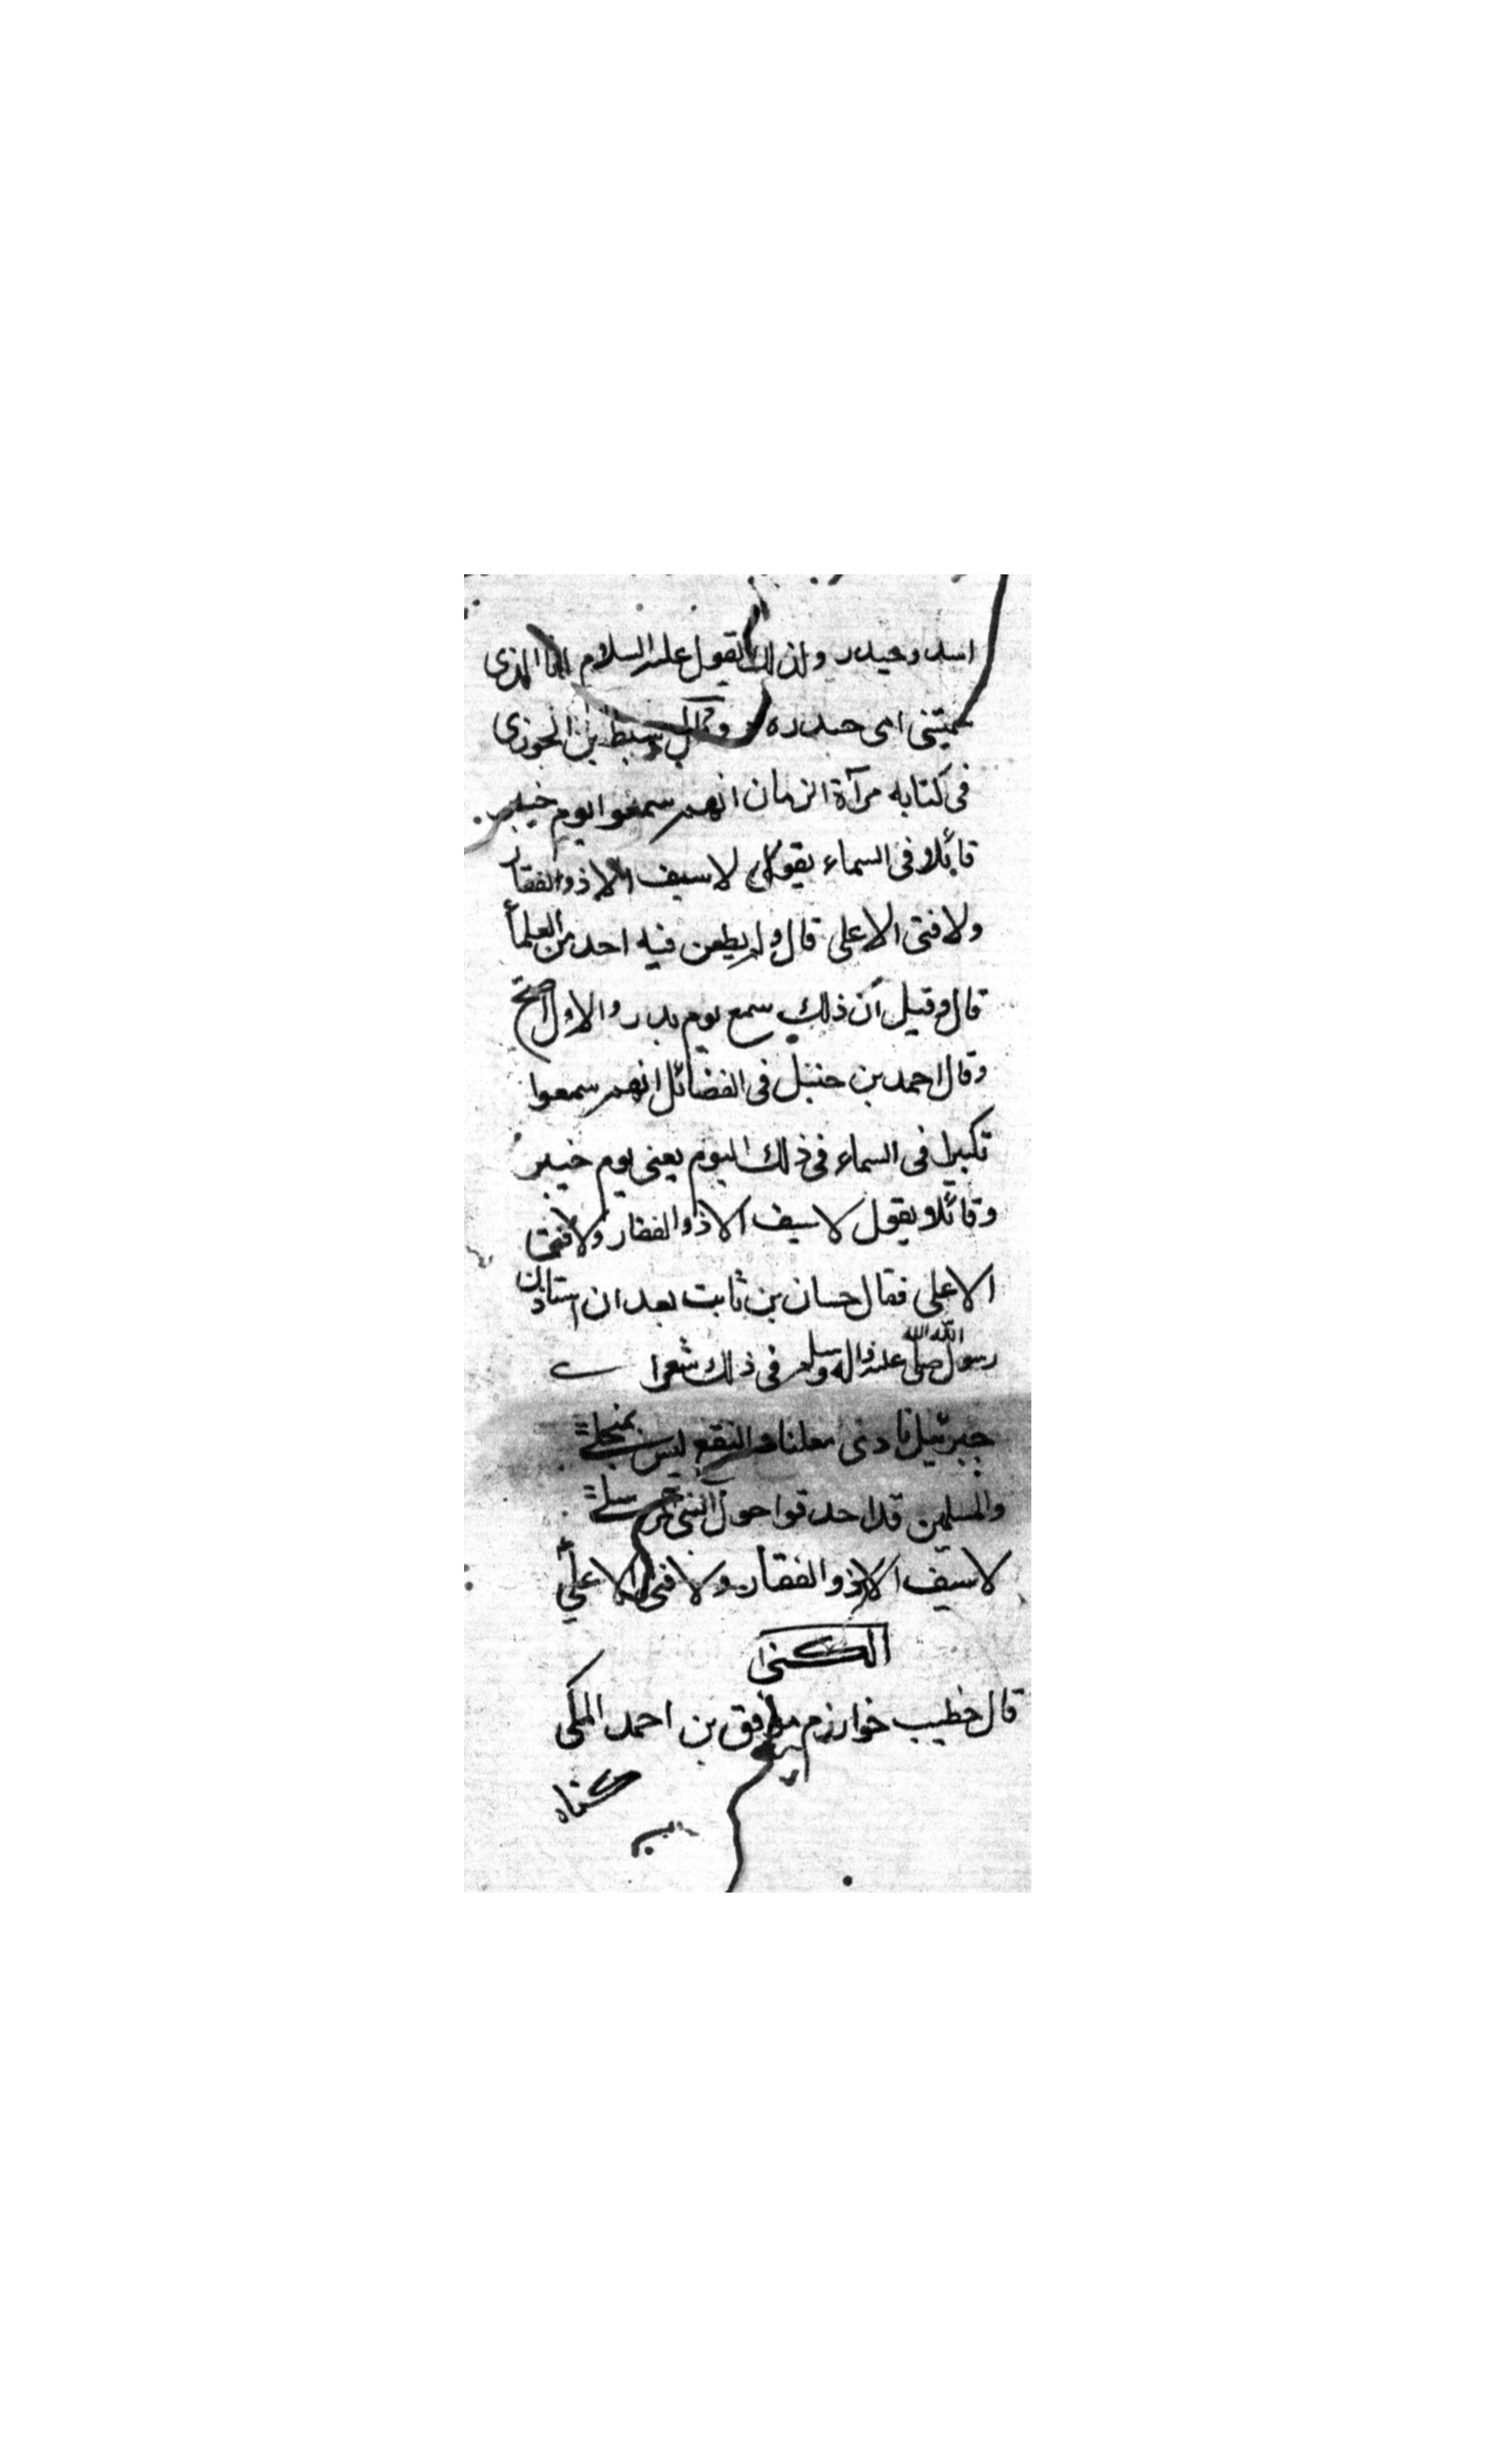 اسد وحيدر ولذلك يقول عليه السلام انا الذى
سميتنى امى حيدره وقال سبط ابن الجوزى
فى كتابه مرآة الزمان انهم سمعوا يوم خيبر
قائلا فى السماء يقول لا سيف الا ذو الفقار
ولا فتى الا على قال ولم يطعن فيه احد من العلمأ
قال وقيل ان ذلك سمع يوم بدر والاول اصح
وقال احمد بن حنبل فى الفضائل انهم سمعوا
تكبيرا فى السماء فى ذلك اليوم يعنى يوم خيبر
وقائلا يقول لا سيف الا ذو الفقار ولا فتى
الا على فقال حسان بن ثابت بعد ان استاذن
رسول الله صلى الله عليه واله وسلم فى ذلك شعرا
جبرئيل نادى معلنا والنقع ليس بمنجلى
والمسلمين قد احدقوا حول النبى المرسلى
لا سيف الا ذو الفقار ولا فتى الا على
الكنى
قال خطيب خوارزم موفق بن احمد المكى
كناه